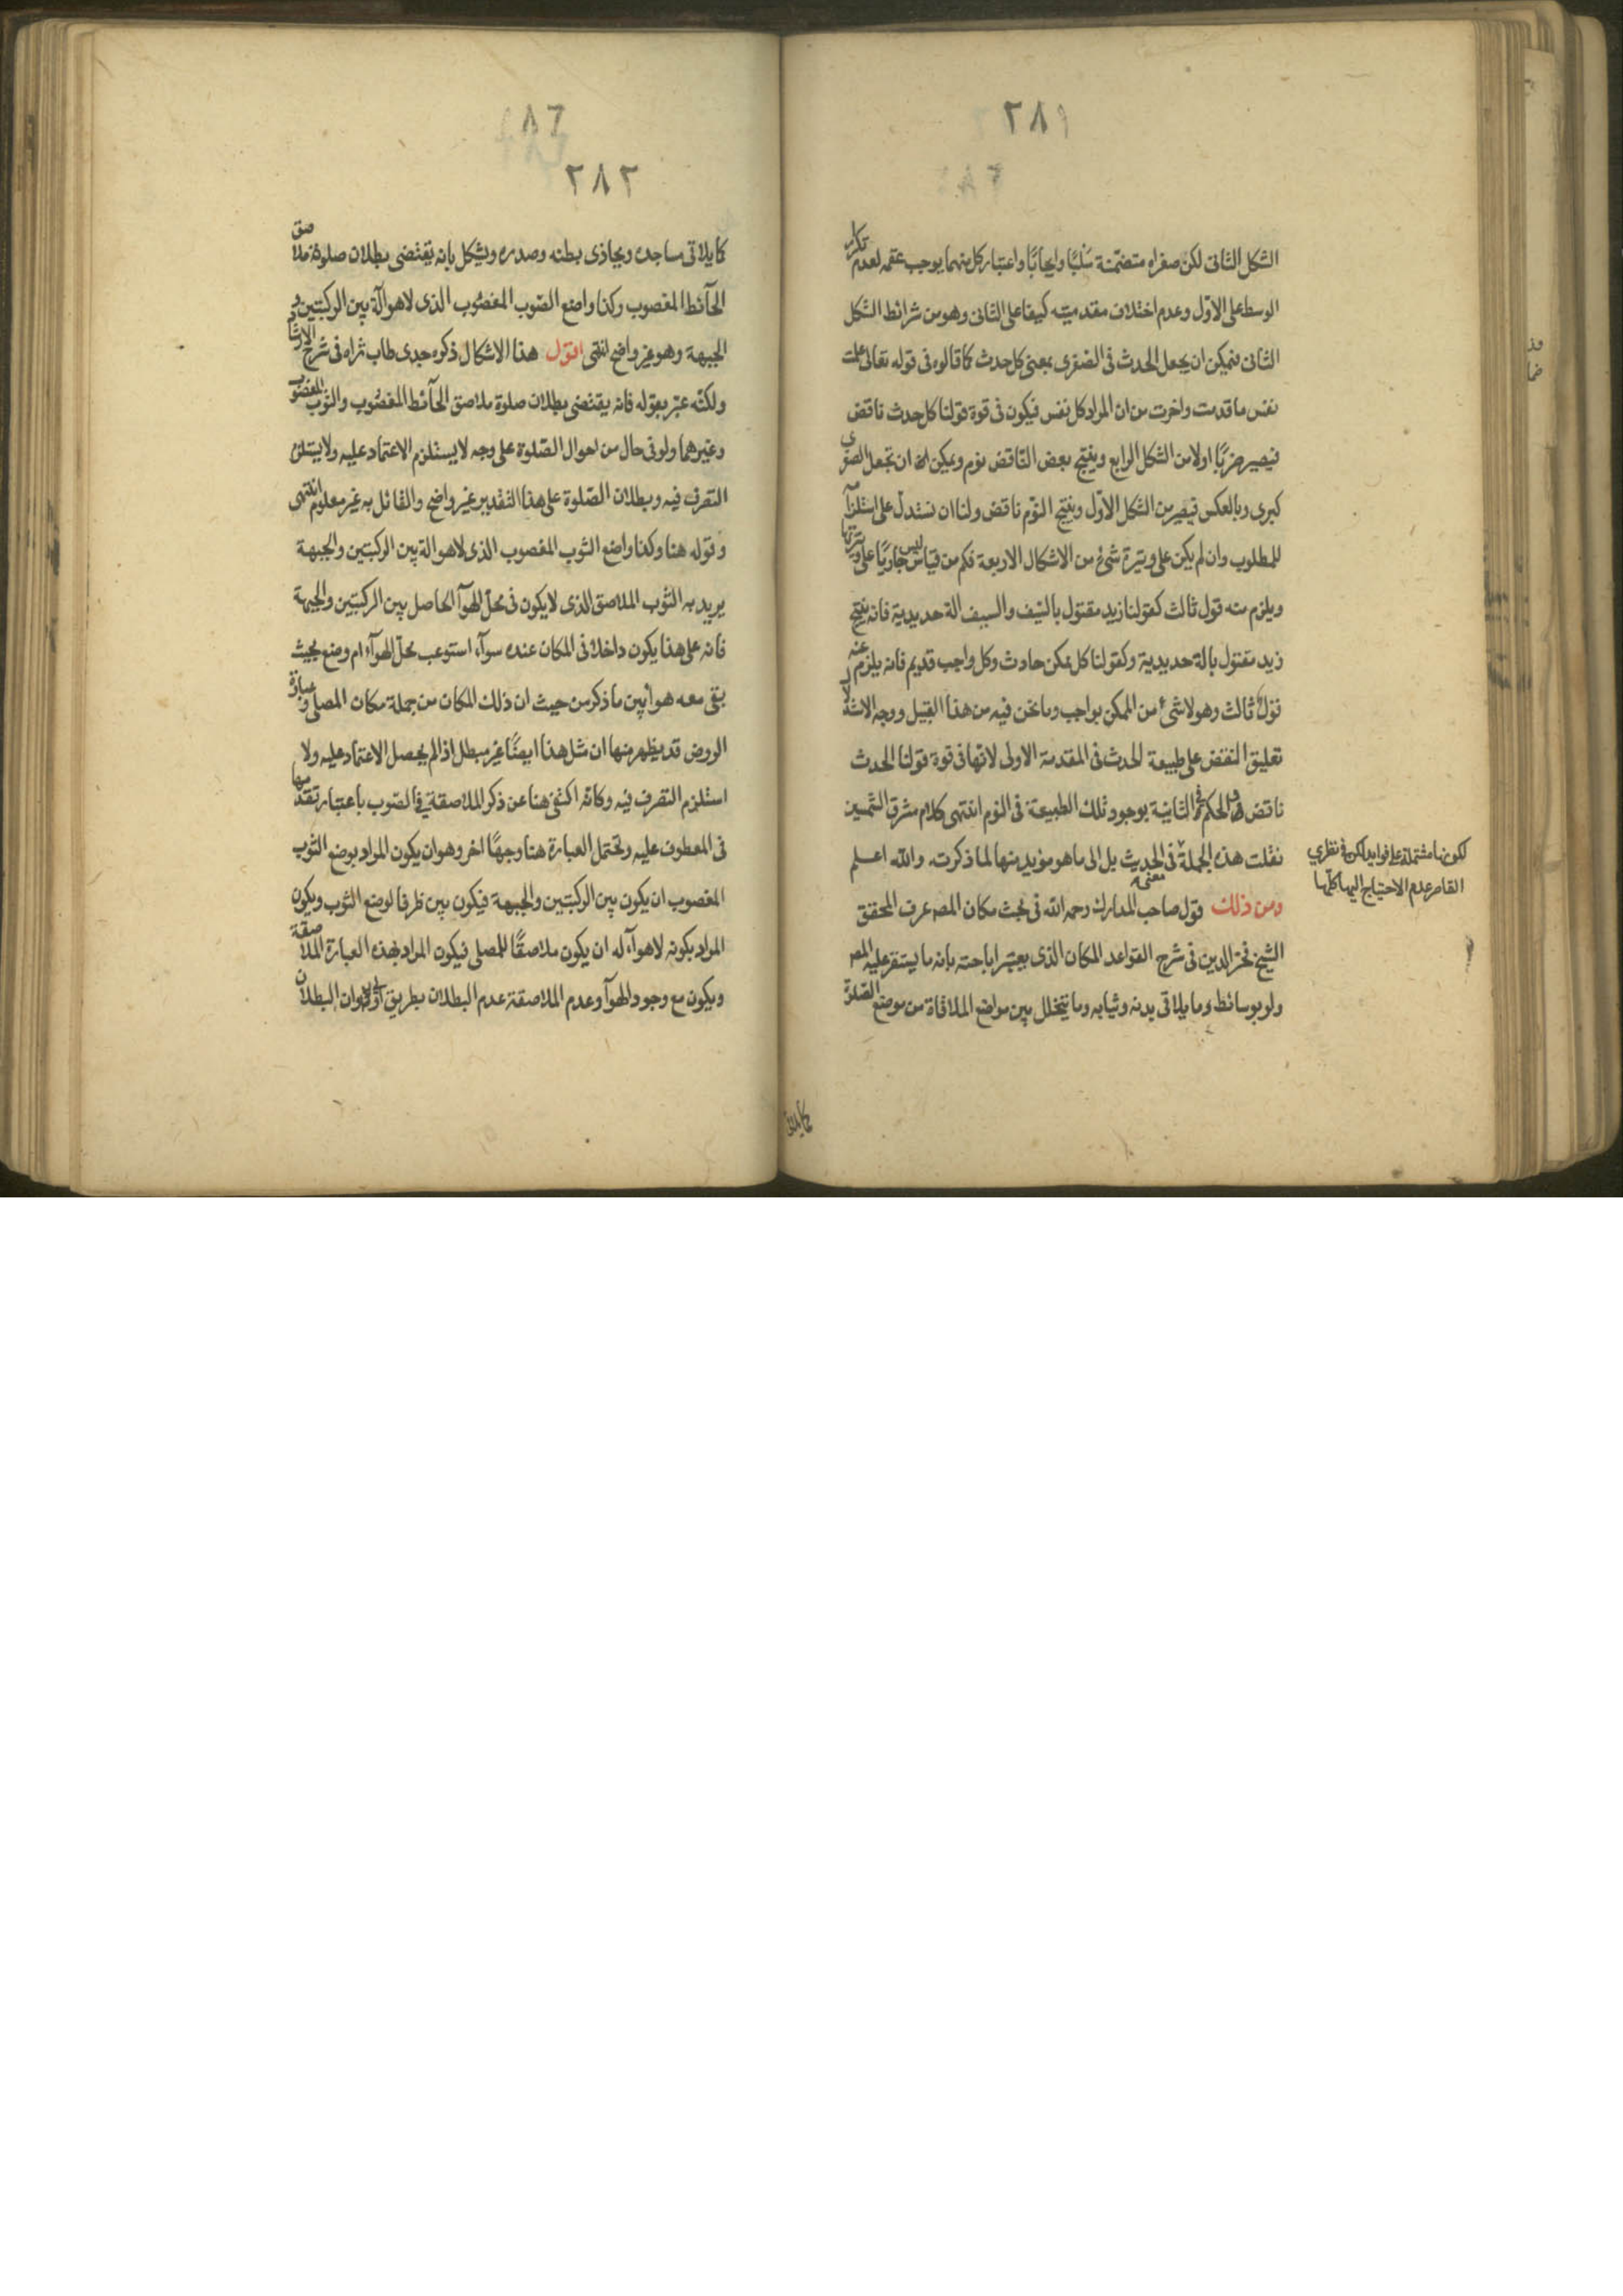 ٢٨١
الشكل الثانى لكن صغراه متضمنة سلبًا وايجابًا واعتبار كل منهما يوجب عقمه لعدم تكرار
الوسط على الاوّل وعدم اختلاف مقدميته كيفا على الثانى وهو من شرائط الشكل
الثانى فيمكن ان يجعل الحدث فى الصغرى بمعنى كل حدث كما قالوه فى قوله تعالى علمت
نفس ما قدمت واخرت من ان المراد كل نفس فيكون فى قوة قولنا كل حدث ناقض
فيصير ضربًا اولا من الشكل الرابع وينتج بعض الناقض نوم ويمكن ان تجعل الصغرى
كبرى وبالعكس فيصير من الشكل الاوّل وينتج النوم ناقض ولنا ان نستدل على استلزامه
للمطلوب وان لم يكن على وتيرة شئ من الاشكال الاربعة فكم من قياس ليس جاريًا على وتيرتها
ويلزم منه قول ثالث كقولنا زيد مقتول بالسّيف والسيف الة حديدية فانه ينتج
زيد مقتول بالة حديدية وكقولنا كل ممكن حادث وكل واجب قديم فانه يلزم عنه
قول ثالث وهو لا شئ من الممكن بواجب وما نحن فيه من هذا القبيل ووجه الاستدلال
تعليق النقض على طبيعة الحدث فى المقدمة الاولى لانها فى قوة قولنا الحدث
ناقض والحكم فى الثانية بوجود تلك الطبيعة فى النوم انتهى كلام مشرق الشمسين
نقلت هذه الجملة فى معنى الحديث بل الى ما هو مزيد منها لما ذكرت والله اعلم
لكونها مشتملة على فوايد لكن فى نظرى
القاصر عدم الاحتياج اليها كلها
ومن ذلك قول صاحب المدارك رحمه الله فى بحث مكان المصلى عرف المحقق
الشيخ فخر الدين فى شرح القواعد المكان الذى يعتبر اباحته بانه ما يستقر عليه المصلى
ولو بوسائط وما يلاقى بدنه وثيابه وما يتخلل بين مواضع الملاقاة من موضع الصلوة
كما يلاقى
٢٨٢
كما يلاقى مساجده ويحاذى بطنه وصدره ويشكل بانه يقتضى بطلان صلوة ملاصق
الحآئط المغصوب وكذا واضع الثوب المغصُوب الذى لا هوآ له بين الركبتين و
الجبهة وهو غير واضح انتهى اقول هذا الاشكال ذكره جدى طاب ثراه فى شرح الارشاد
ولكنّه عبّر بقوله فانه يقتضى بطلان صلوة ملاصق الحآئط المغصُوب والثوب المغصوب
وغيرهما ولو فى حال من احوال الصّلوة على وجه لا يستلزم الاعتماد عليه ولا يستلزم
التصرف فيه وبطلان الصّلوة على هذا التقدير غير واضح والقائل به غير معلوم انتهى
وقوله هنا وكذا واضع الثوب المغصوب الذى لا هوا له بين الركبتين والجبهة
يريد به الثوب الملاصق الذى لا يكون فى محلّ الهوآ الحاصل بين الركبتين والجبهة
فانه على هذا يكون داخلا فى المكان عنده سوآء استوعب محلّ الهوآء ام وضع بحيث
بقى معه هوا بين ما ذكر من حيث ان ذلك المكان من جملة مكان المصلى وعبارة
الروض قد يظهر منها ان مثل هذا ايضًا غير مبطل اذا لم يحصل الاعتماد عليه ولا
استلزم التصرف فيه وكانه اكتفى هنا عن ذكر الملاصقة فى الثوب باعتبار تقدمها
فى المعطوف عليه وتحتمل العبارة هنا وجهًا اخر وهو ان يكون المراد بوضع الثوب
المغصوب ان يكون بين الركبتين والجبهة فيكون بين ظرفا لوضع الثوب ويكون
المراد بكونه لا هوآء له ان يكون ملاصقًا للمصلى فيكون المراد بهذه العبارة الملاصقة
ويكون مع وجود الهوآ وعدم الملاصقة عدم البطلان بطريق اولى وان البطلان